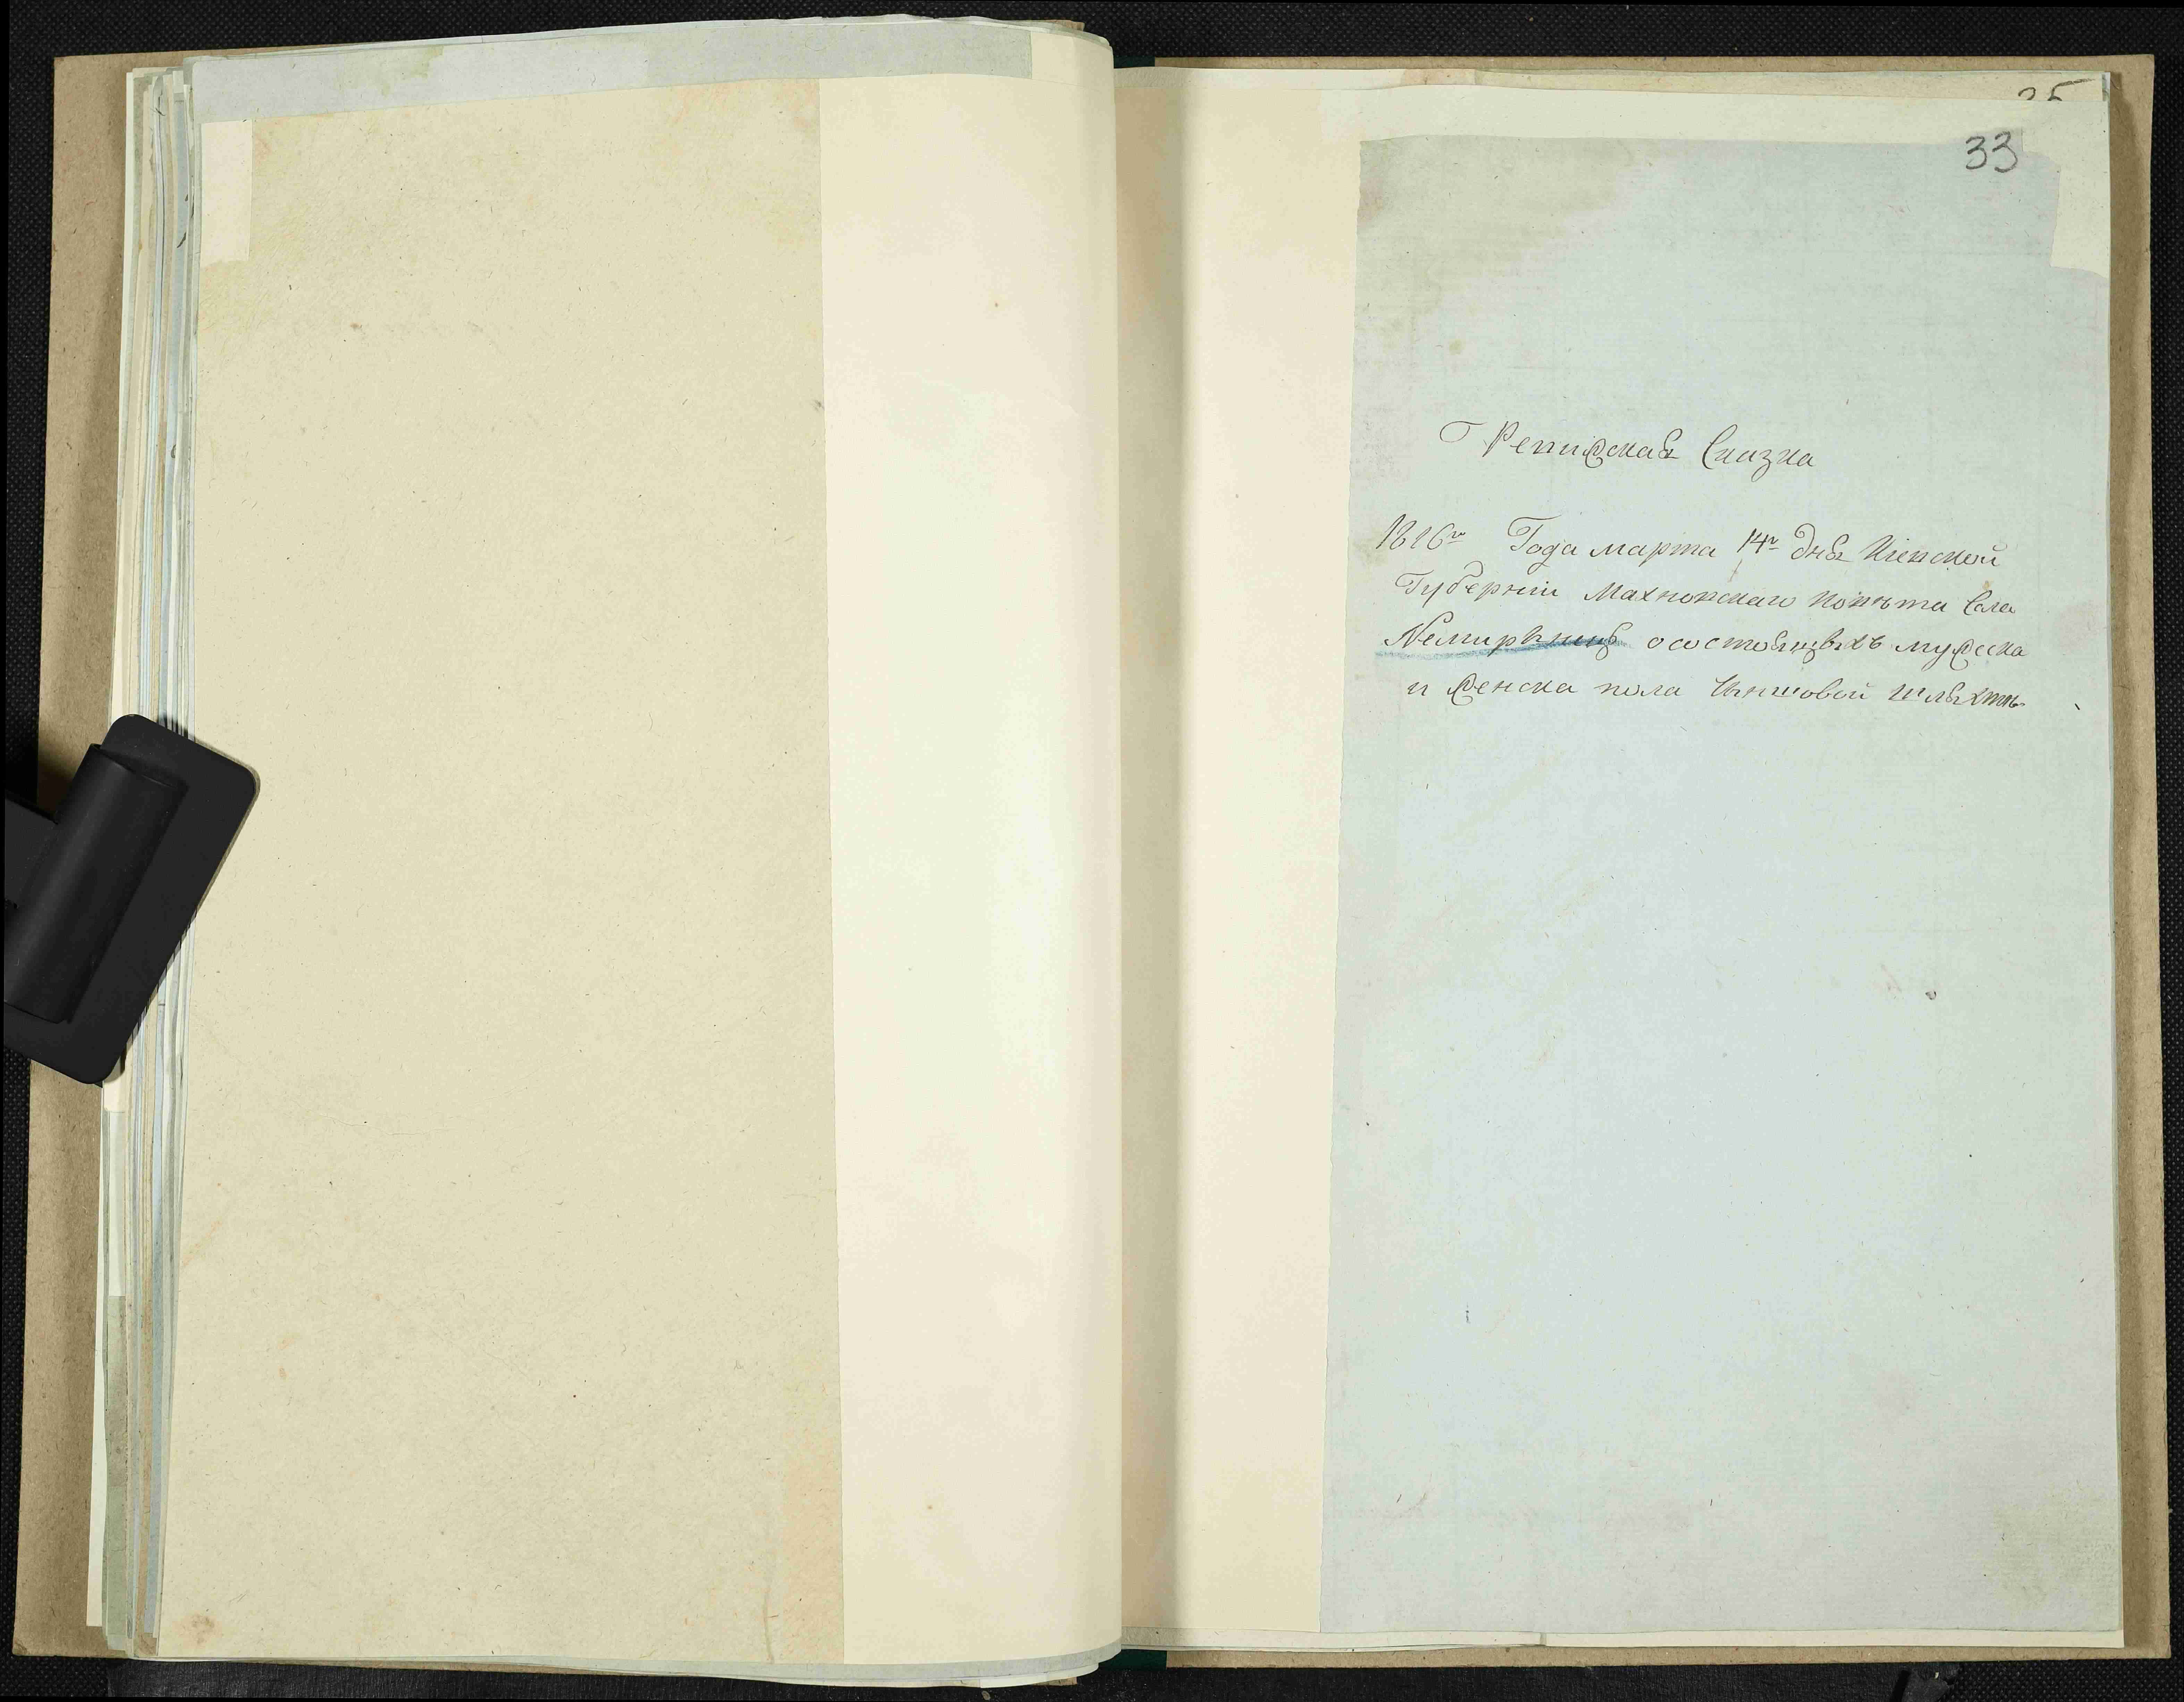 33
Ревижская Сказка
1816го Года марта 14го дня Кіевской
Губерніи Махновскаго повѣта Села
Немиринец о состоящихъ мужеска
и женска пола Чыншовой шляхтѣ